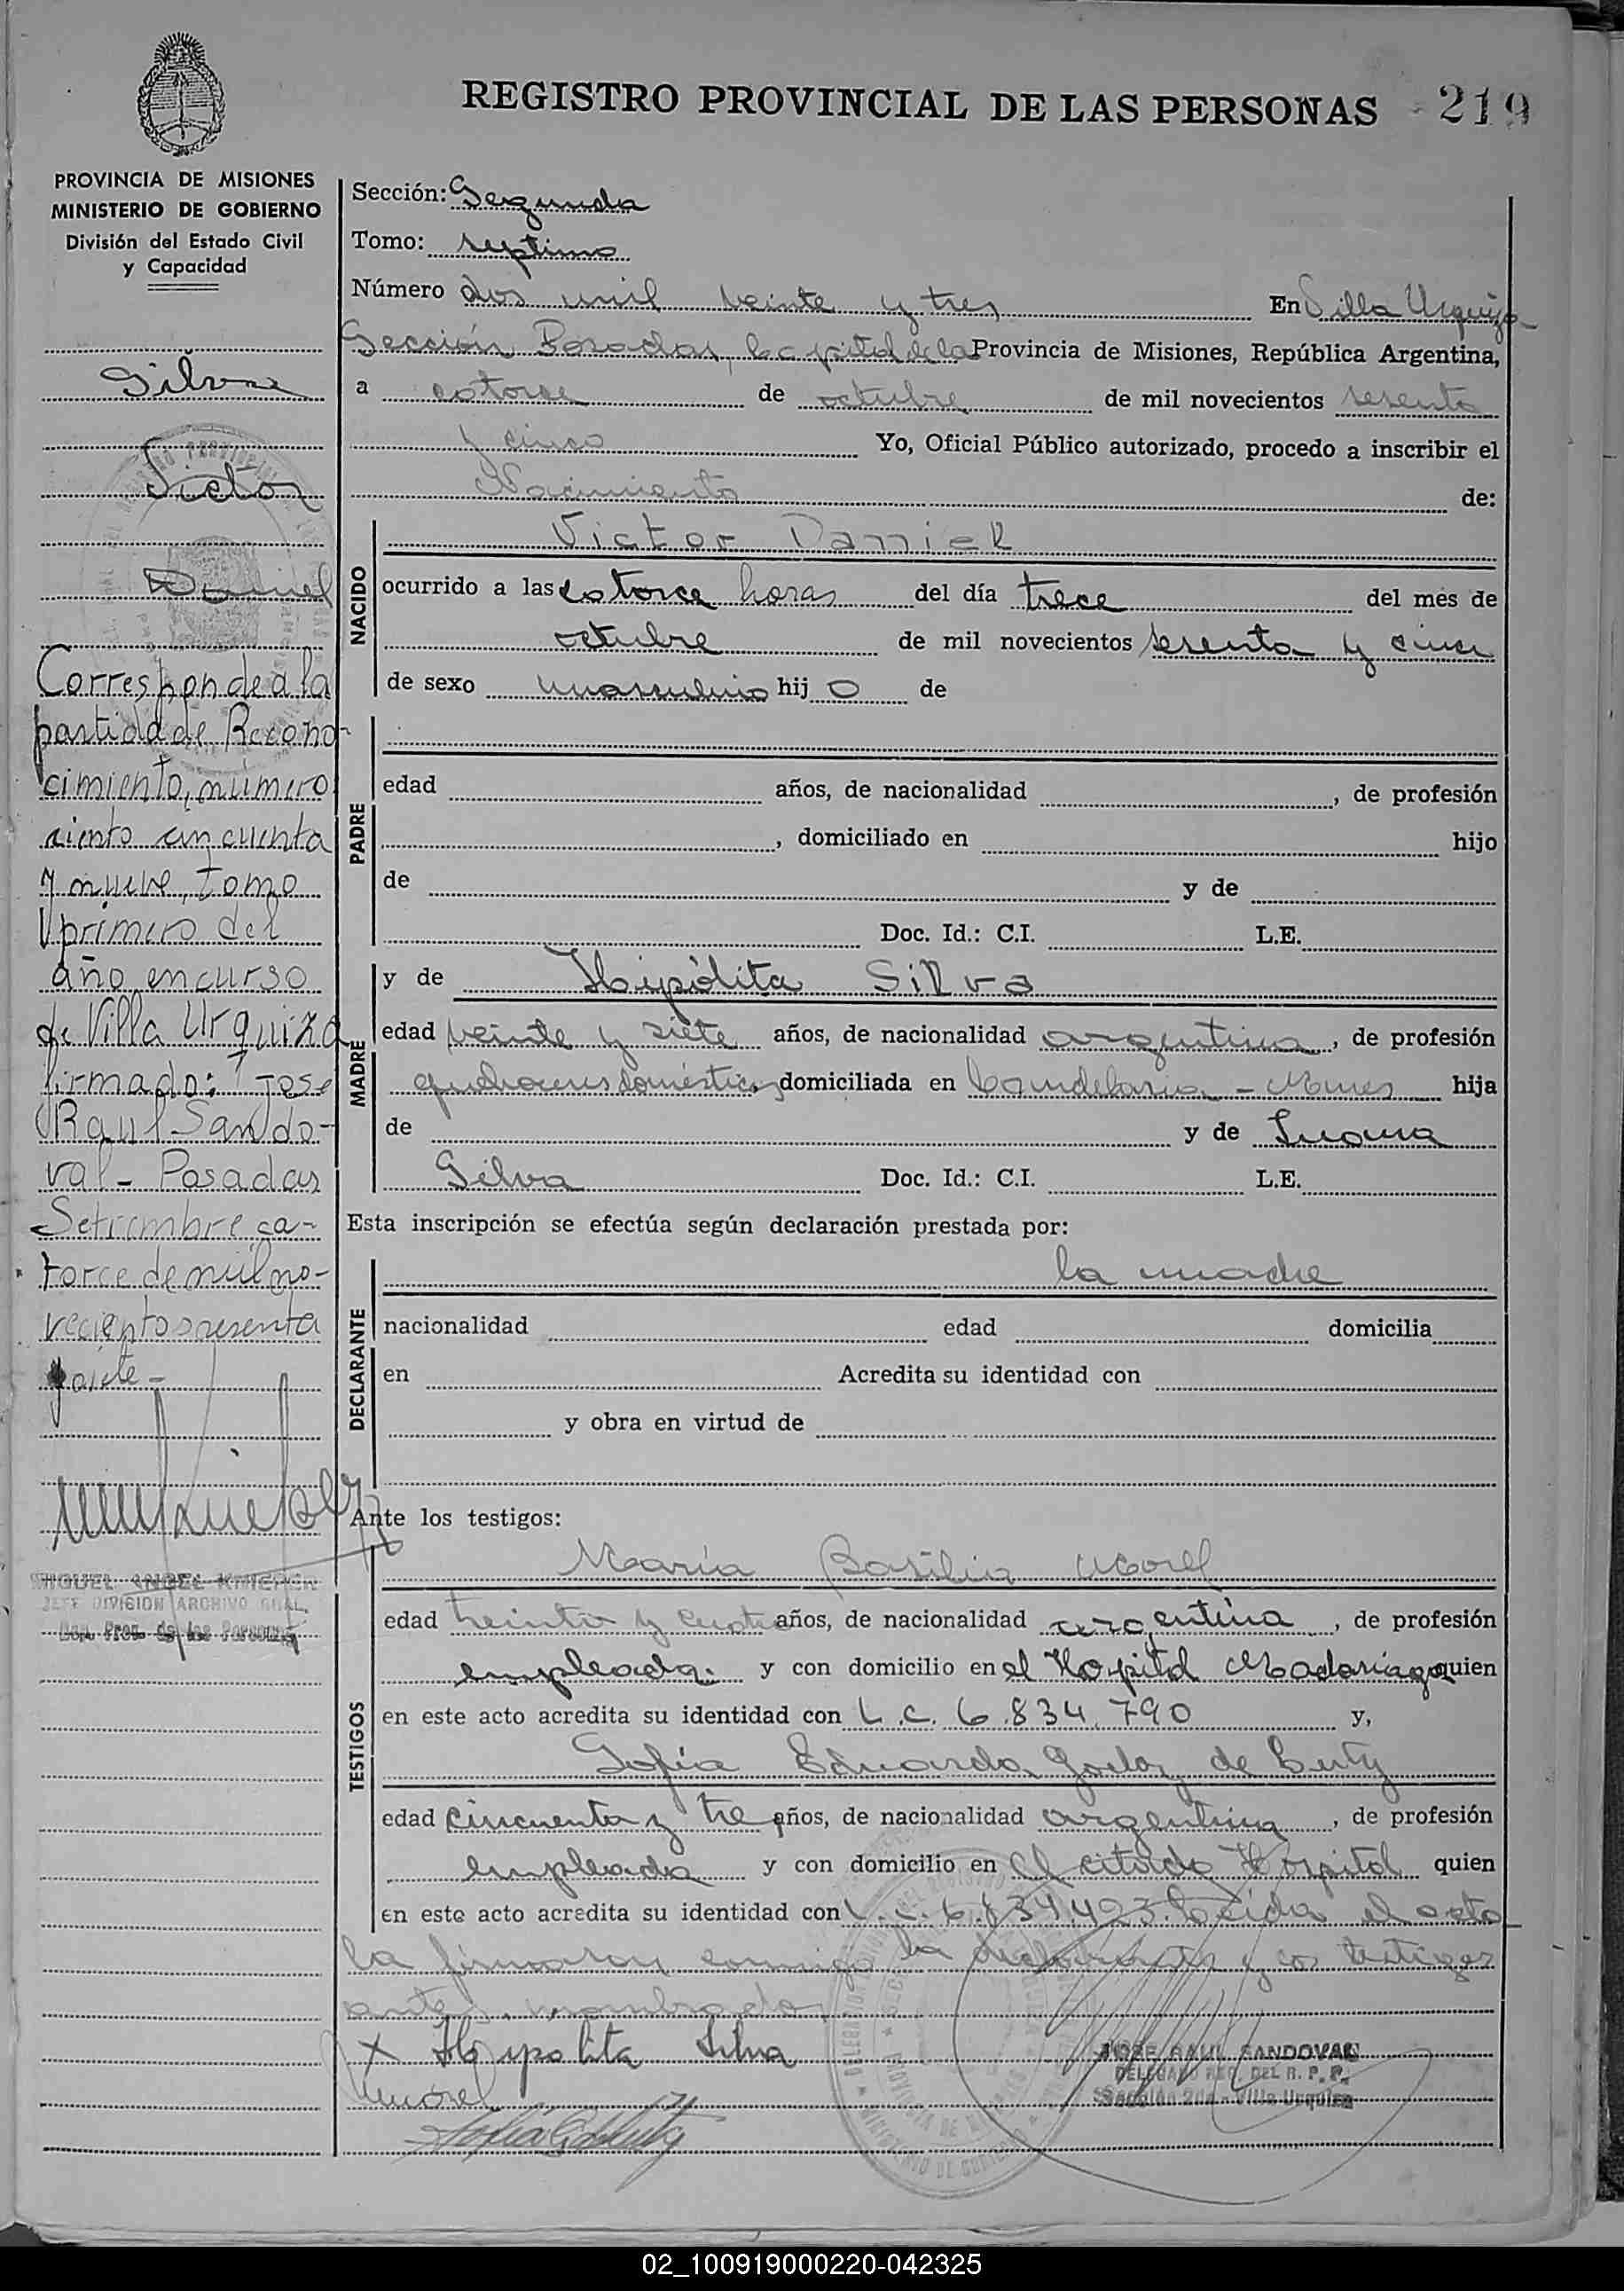 REGISTRO PROVINCIAL DE LAS PERSONAS 219
PROVINCIA DE MISIONES
MINISTERIO DE GOBIERNO
División del Estado Civil
y Capacidad
Silva
Victor
Daniel
Corresponde a la
partida de Recono-
cimiento, número
ciento cincuenta
y nueve, tomo
primero del
año en curso
de Villa Urquiza
firmado: Jose
Raul Sando-
val - Posadas
Setiembre ca-
torce de mil no-
vecientos sesenta
y siete -
MIGUEL ANGEL
JEFE DIVISION ARCHIVO GRAL.
Prov. de las Personas
Sección: Segunda
Tomo: septimo
Número dos mil veinte y tres En Villa Urquiza
Sección Posadas, capital de la Provincia de Misiones, República Argentina,
a catorce de octubre de mil novecientos sesenta
y cinco Yo, Oficial Público autorizado, procedo a inscribir el
Nacimiento de:
NACIDO
Victor Daniel
ocurrido a las catorce horas del día trece del mes de
octubre de mil novecientos sesenta y cinco
de sexo masculino hijo de
PADRE
edad años, de nacionalidad , de profesión
, domiciliado en hijo
de y de
Doc. Id.: C.I. L.E.
MADRE
y de Hipólita Silva
edad veinte y siete años, de nacionalidad argentina, de profesión
quehaceres domésticos, domiciliada en Candelaria - Mnes hija
de y de Juana
Silva Doc. Id.: C.I. L.E.
Esta inscripción se efectúa según declaración prestada por:
DECLARANTE
la madre
nacionalidad edad domicilia
en Acredita su identidad con
y obra en virtud de
Ante los testigos:
TESTIGOS
María Basilia Morel
edad treinta y cuatro años, de nacionalidad argentina, de profesión
empleada. y con domicilio en el Hospital Madariaga quien
en este acto acredita su identidad con L.C. 6.834.790 y,
Sofia Eduarda Godoy de
edad cincuenta y tres años, de nacionalidad argentina, de profesión
empleada y con domicilio en el citado Hospital quien
en este acto acredita su identidad con L.C. 6.834.423. Leida el acta
la firmaron conmigo la declarante y los testigos
antes nombrados
X Hipolita Silva
Morel
JOSE RAUL SANDOVAL
DELEGADO DEL R. P. P.
Sección 2da - Villa Urquiza
02_100919000220-042325